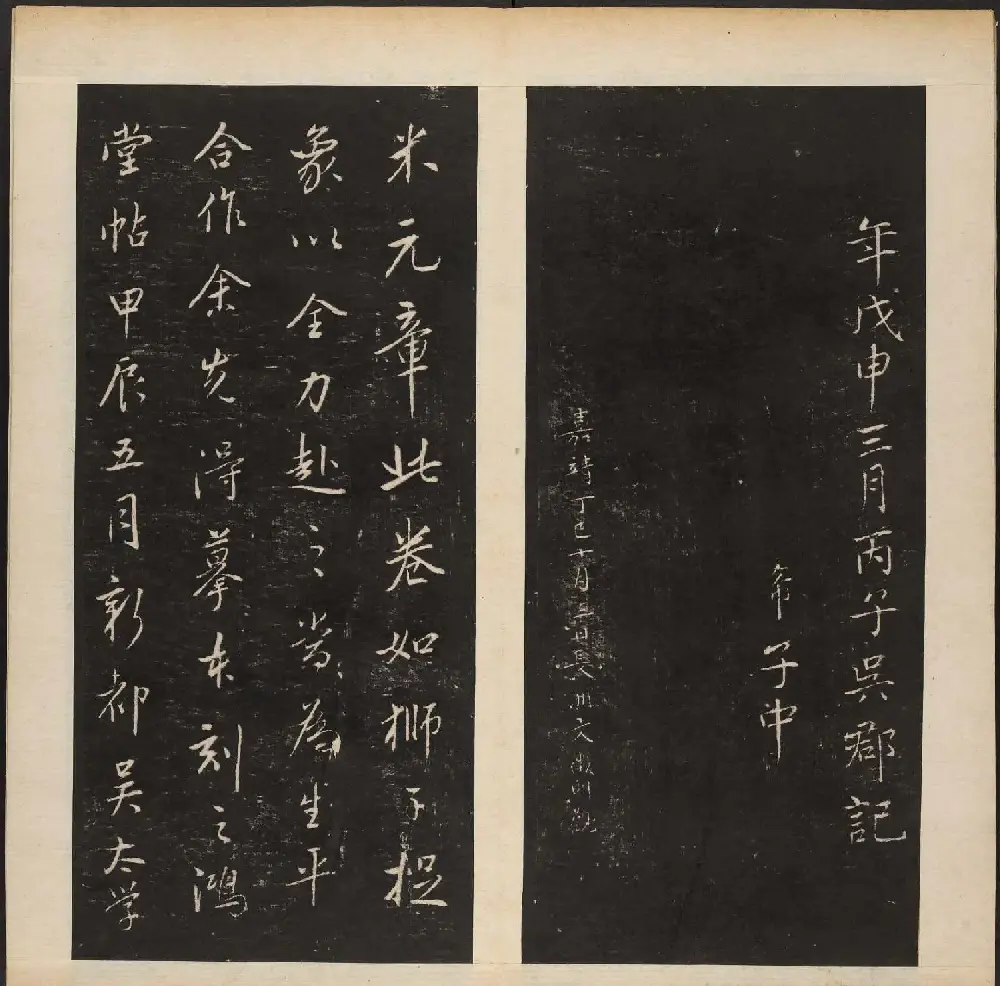 年戊申三月丙子吳郡記
子中
嘉靖丁巳十月日長洲文徵明觀
米元章此卷如獅子捉
象以全力赴之當為生平
合作余先得摹本刻之鴻
堂帖甲辰五月新都吳太学